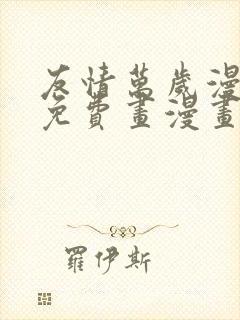 友情萬歲漫
免費畫漫畫
羅伊斯